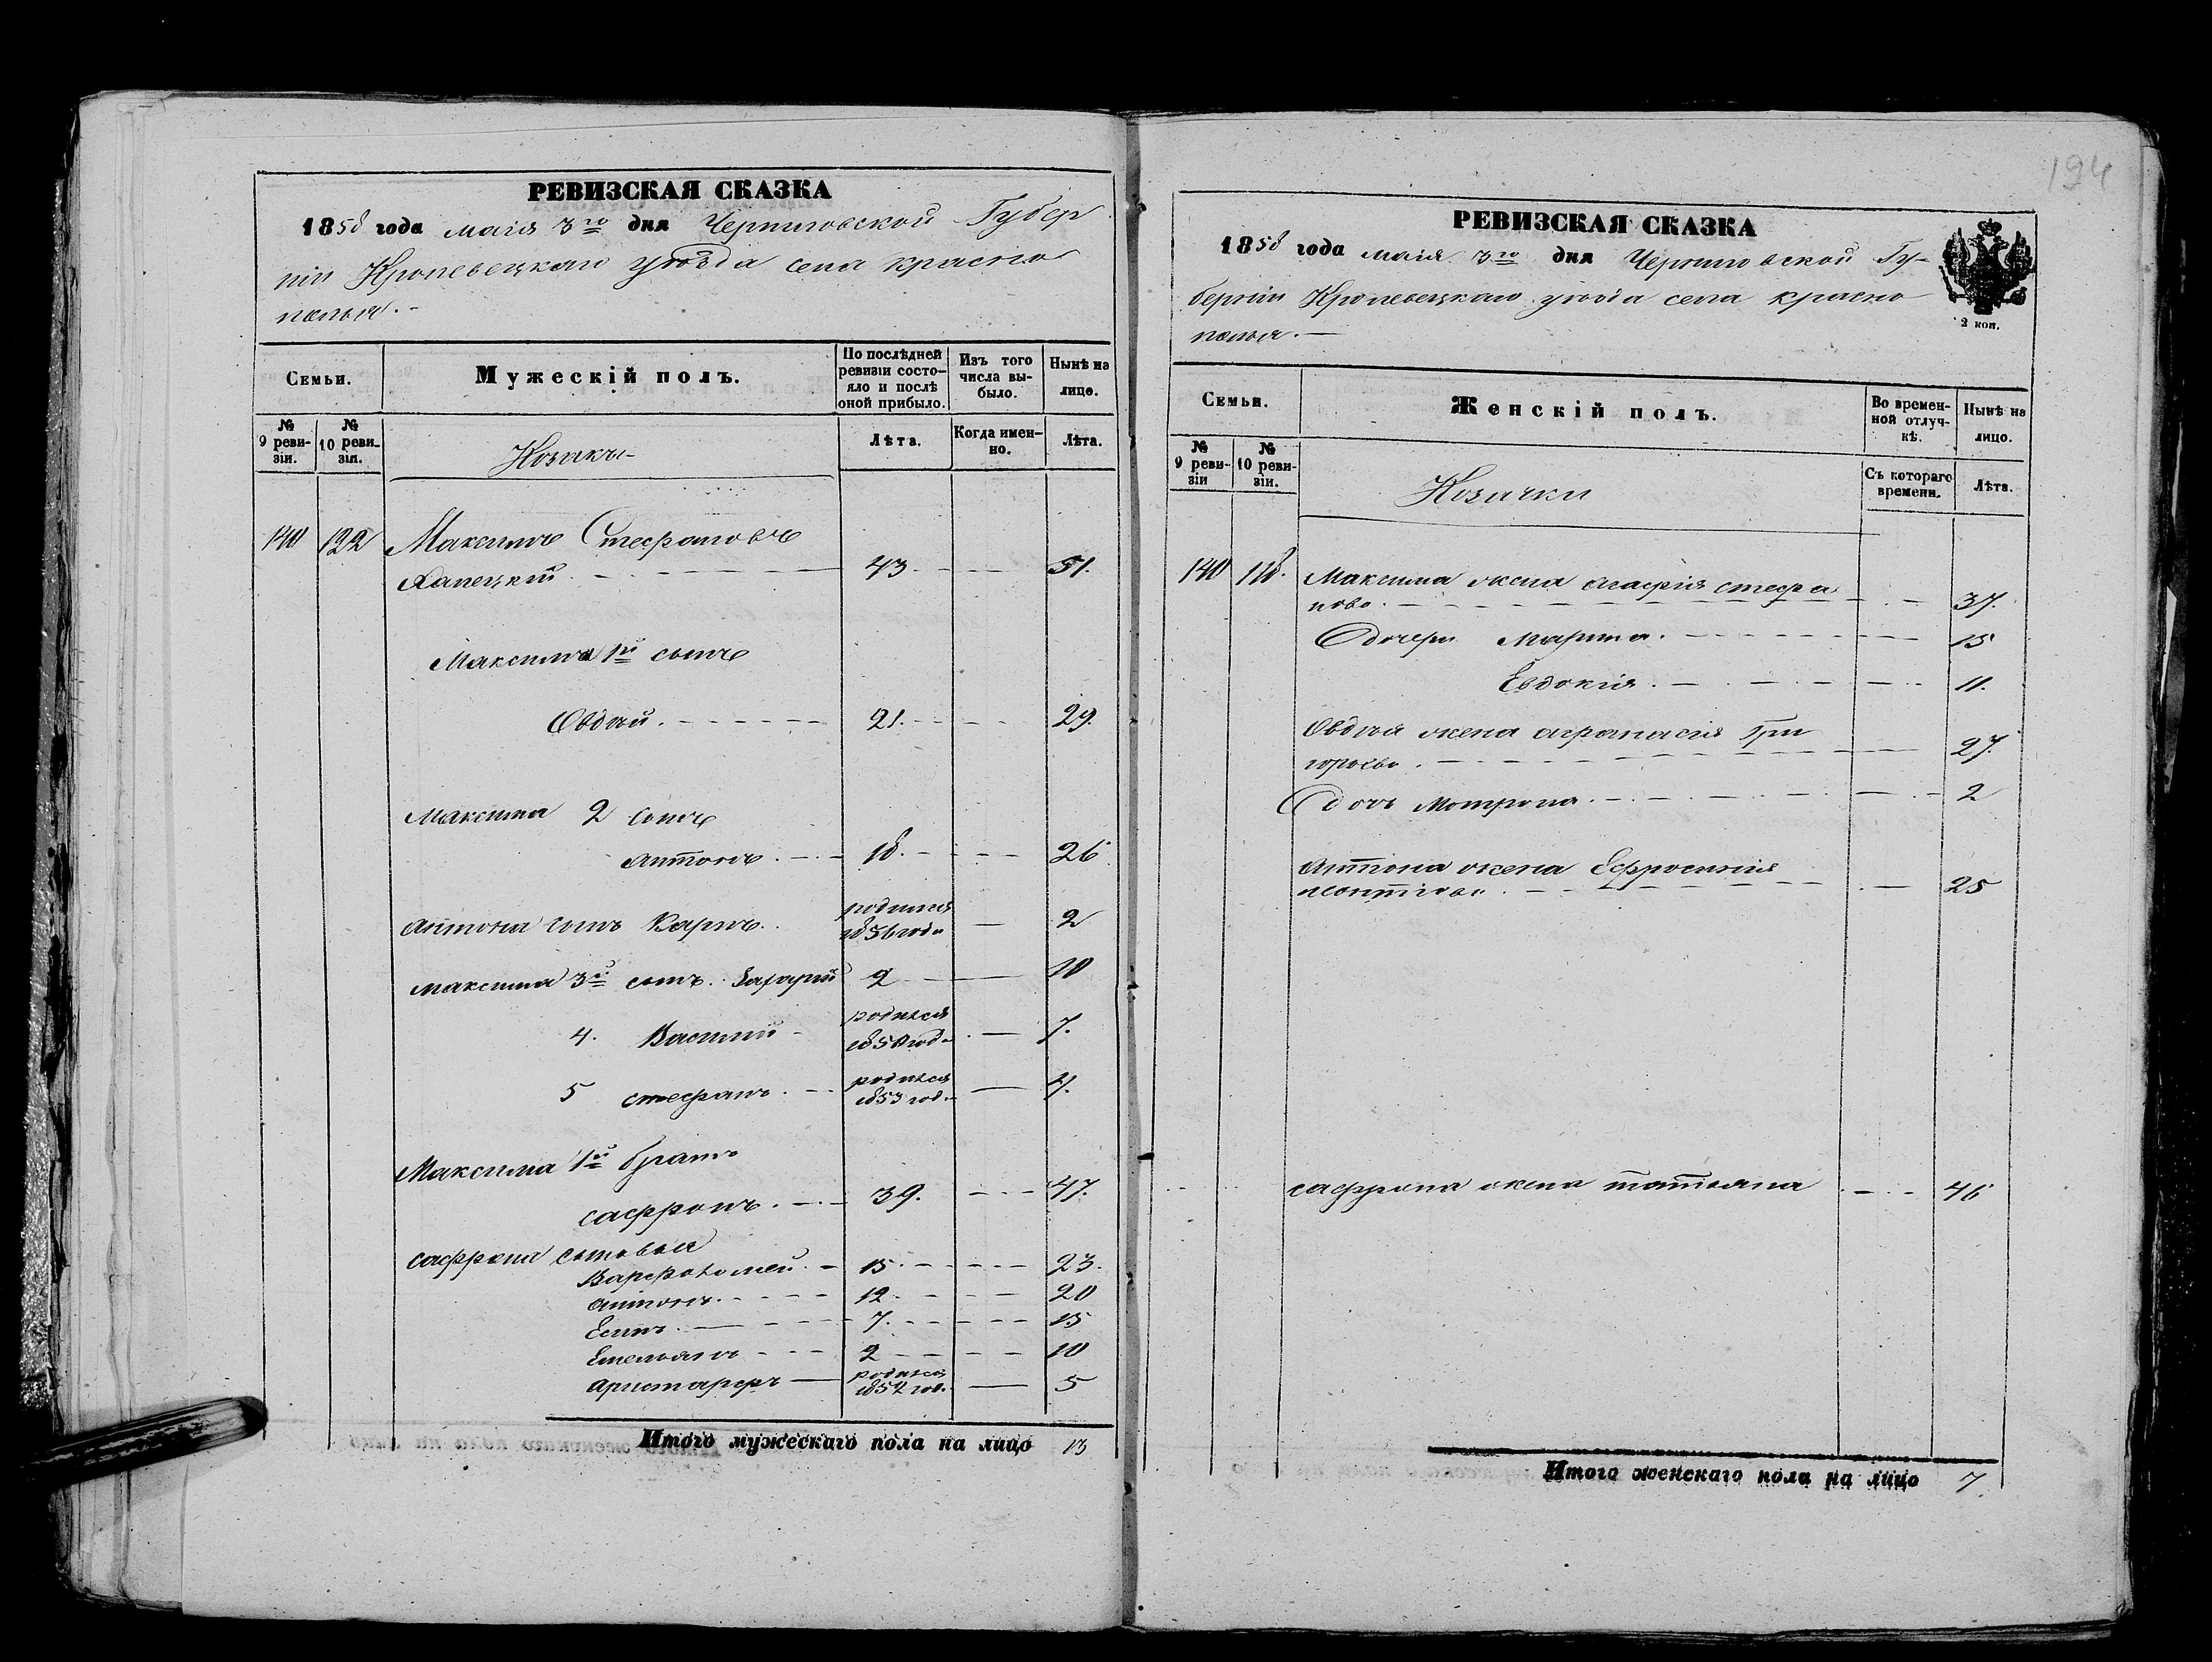 РЕВИЗСКАЯ СКАЗКА
1858 года маія 3го дня Черниговской Губер
ніи Кролевецкаго уѣзда села красно
полья.
Семьи.
Мужескій полъ.
По послѣдней ревизіи состояло и послѣ оной прибыло.
Изъ того числа выбыло.
Нынѣ на лице.
№ 9 ревизіи.
№ 10 ревизіи.
Козаки
Лѣта.
Когда именно.
Лѣта.
140 122 Максимъ Стефановъ
Хапецкій 43 51.
Максима 1й сынъ
Овдѣй 21. 29.
Максима 2 сынъ
Антонъ 18. 26
Антона сынъ Карпъ родился 1856 года 2
Максима 3й сынъ Захарій 2 10
4. Василий родился 1850 год 7.
5 стефанъ родился 1853 год 4.
Максима 1й братъ
сафронъ 39. 47.
сафрона сыновья
Варфоломей 15. 23.
антонъ 12 20
Есипъ 7. 15
Емельянъ 2 10
Аристархъ родился 1852 год 5
Итого мужескаго пола на лицо 13
194
РЕВИЗСКАЯ СКАЗКА
1858 года маія 3го дня Черниговской Гу-
берніи Кролевецкаго уѣзда села красно
полья.
2 коп.
Семьи.
Женскій полъ.
Во временной отлучкѣ.
Нынѣ на лицо.
№ 9 ревизіи
№ 10 ревизіи.
Козачки
Съ котораго времени.
Лѣта.
140 118. Максима жена агафія стефа
нова 37.
дочери Марина. 15
Евдокия 11.
Овдѣя жена афанасія Гри
горьева 27.
дочь Мотрона 2
Антона жена Ефросинія
леонтіева 25
сафрона жена татіяна 46
Итого женскаго пола на лицо 7.